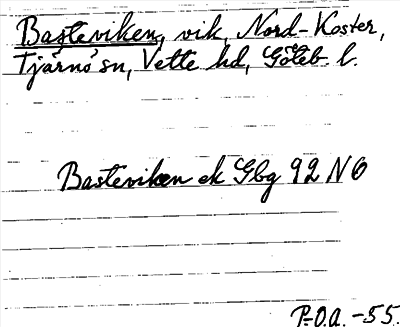 Basteviken, vik, Nord-Koster,
Tjärnö sn, Vette hd, Göteb. l.
Basteviken ek Gbg 92 NO
P.-O.A. -55.